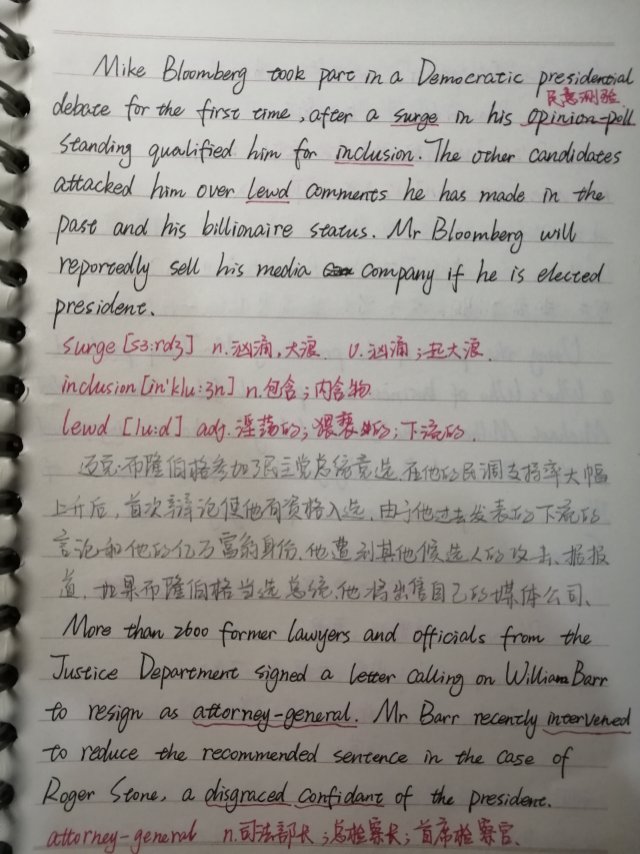 Mike Bloomberg took part in a Democratic presidential
民意测验
debate for the first time, after a surge in his opinion-poll
standing qualified him for inclusion. The other candidates
attacked him over lewd comments he has made in the
past and his billionaire status. Mr Bloomberg will
reportedly sell his media company if he is elected
president.
surge [sɜ:rdʒ] n.汹涌,大浪. v.汹涌;起大浪.
inclusion [in'klu:ʒn] n.包含;内含物
lewd [lu:d] adj.淫荡的;猥亵的;下流的.
迈克·布隆伯格参加了民主党总统竞选,在他的民调支持率大幅
上升后,首次辩论使他有资格入选,由于他过去发表的下流的
言论和他的亿万富翁身份,他遭到其他候选人的攻击、据报
道,如果布隆伯格当选总统,他将出售自己的媒体公司、
More than 2600 former lawyers and officials from the
Justice Department signed a letter calling on William Barr
to resign as attorney-general. Mr Barr recently intervened
to reduce the recommended sentence in the case of
Roger Stone, a disgraced confidant of the president.
attorney-general n.司法部长;总检察长;首席检察官.